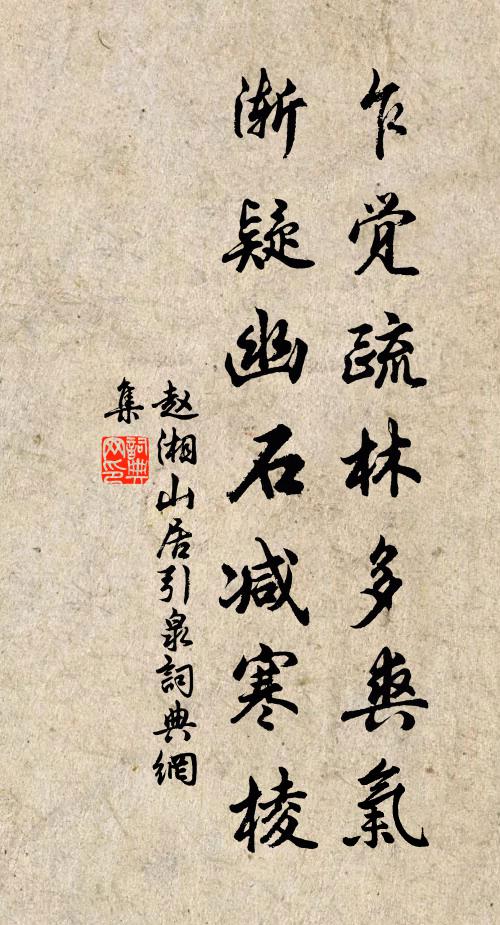 乍觉疏林多爽氣
渐疑幽石减寒棱
赵湘山居引泉詞典網
集
詞典
网印